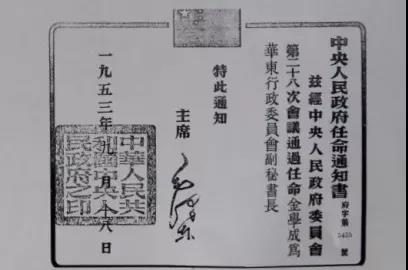 中央人民政府任命通知書
府字第5435號
兹經中央人民政府委員會
第二十八次會議通過任命金學成爲
華東行政委員會副秘書長
特此通知
主席
毛澤東
一九五三年九月十八日
中華人民共
和國中央人
民政府之印